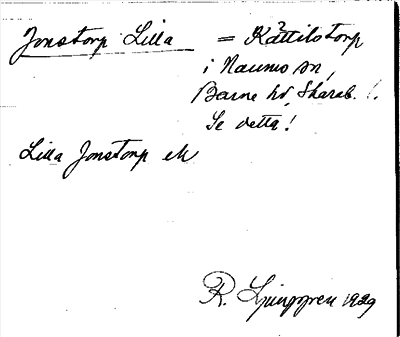 Jonstorp Lilla = Kättilstorp
i Naums sn,
Barne hd, Skarab. l.
Se detta!
Lilla Jonstorp ek
R. Ljunggren 1929